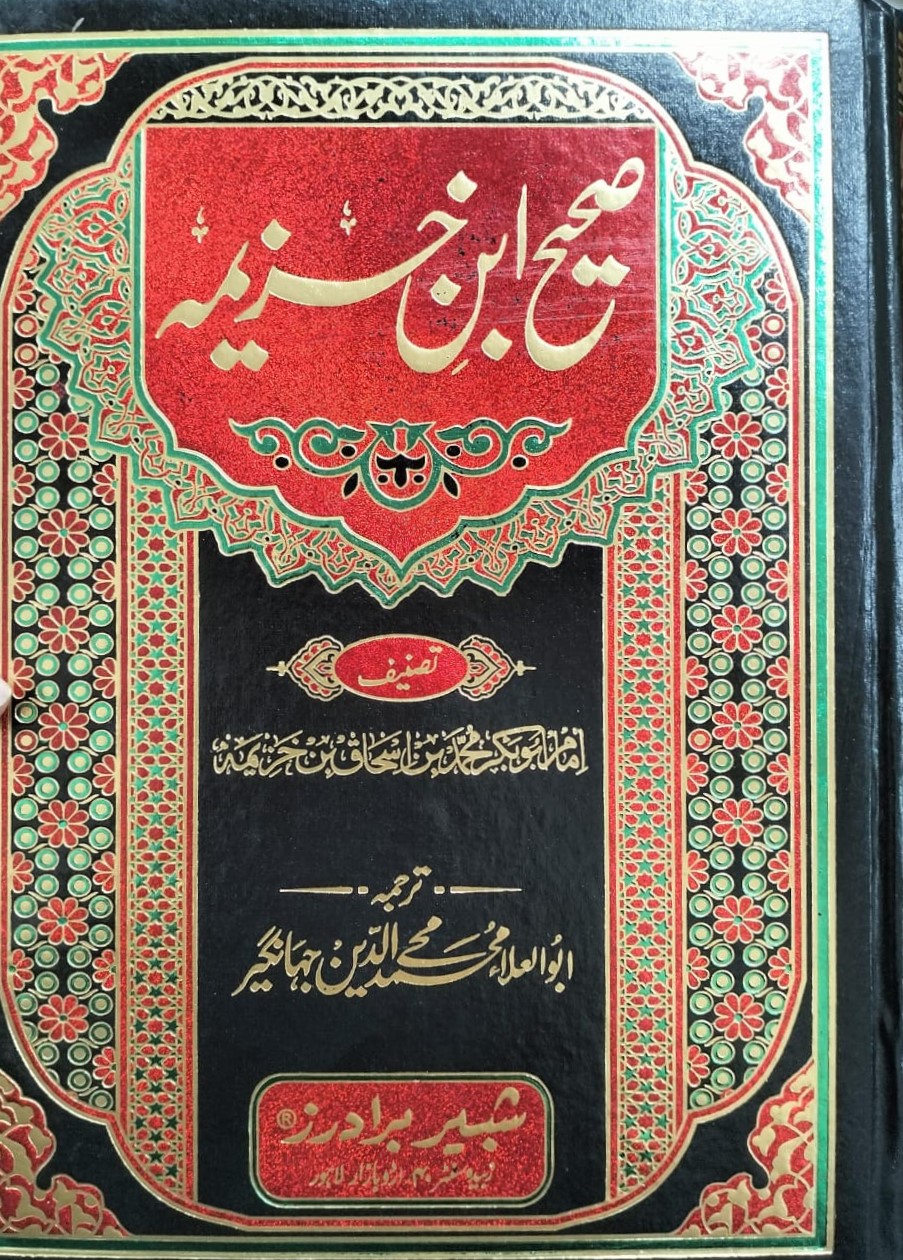 صحیح ابنِ خزیمہ
تصنیف
امام ابوبکر محمد بن اسحاق بن خزیمہ
ترجمہ
ابوالعلاء محمد محی الدین جہانگیر
شبیر برادرز ®
زبیدہ سنٹر ۴۰ اردو بازار لاہور